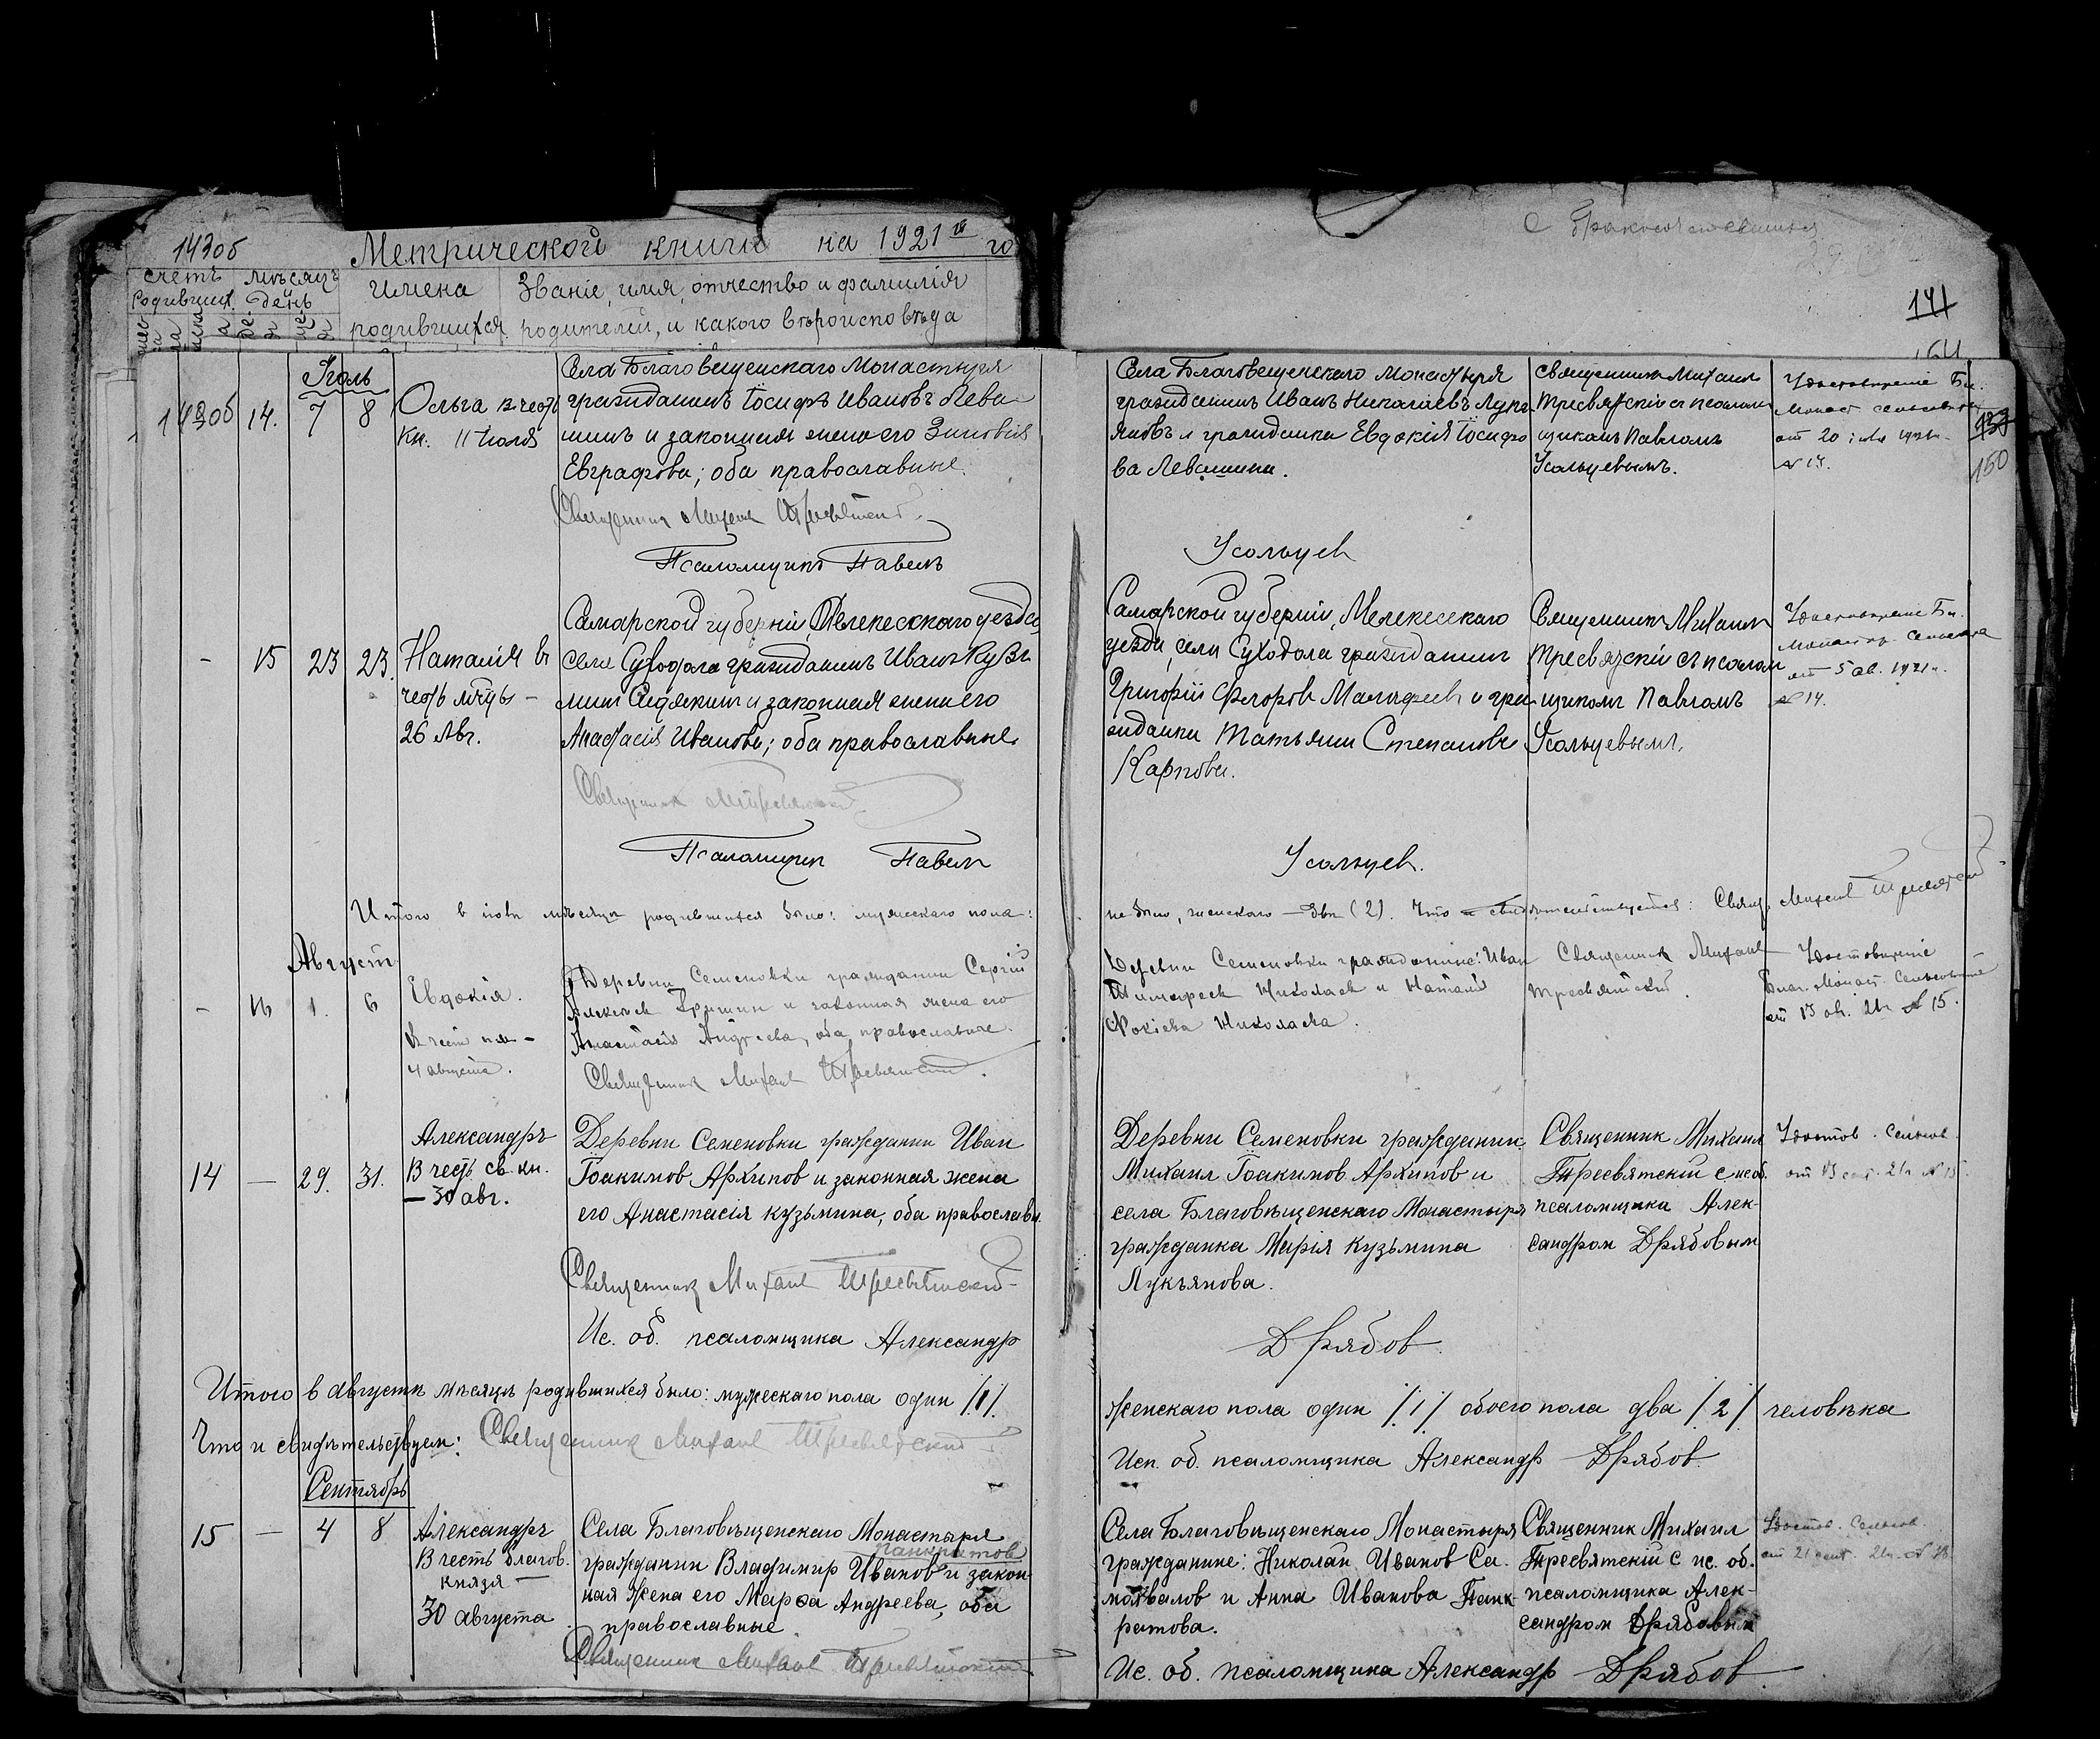 14306
Метрической книги на 1921 го
счетъ родившихся
мѣсяцъ день
Имена родившихся
Званіе, имя, отчество и фамилія
родителей, и какого вѣроисповѣда
141
Іюль
14306 14. 7 8
Ольга в честь
кн. 11 Іюля
Села Благовещенскаго Монастыря
гражданинъ Іосифъ Ивановъ Лева-
шинъ и законная жена его Зиновія
Евграфова; оба православные.
Священник Михаил Тресвятскій
Псаломщикъ Павелъ
Села Благовещенскаго Монастыря
гражданинъ Иванъ Николаевъ Лукъ
яновъ и гражданка Евдокія Іосифо
ва Левашина.
Усольцев
священникъ Михаил
Тресвятскій с псалом
щикомъ Павломъ
Усольцевымъ.
Удостовереніе Бл.
монаст сельсовета
от 20
№ 13.
150
- 15 23 23.
Наталія въ
честь мч-цы -
26 Авг.
Самарской губерніи, Мелекесскаго уезда,
села Суходола гражданинъ Иванъ Кузь
мин Сидякин и законная жена его
Анастасія Иванова; оба православные.
Священник Тресвятскій
Псаломщик Павел
Самарской губерніи, Мелекесскаго
уезда, села Суходола гражданинъ
Григорій Федоров Малафеев и гра-
жданка Татьяна Степанова
Карпова.
Усольцев.
Священникъ Михаил
Тресвятскій съ псалом
щикомъ Павломъ
Усольцевымъ.
Удостоверение Бл.
монастыр сельсовета
от 5 ав. 1921 г.
№ 14.
Итого в іюле месяце родившихся было: мужескаго пола:
не было, женскаго — два (2). Что и свидетельствуется: Свящ. Михаил Тресвятскій
Август
- 16 1. 6
Евдокія.
В честь
4 августа.
Деревни Семеновки гражданин Сергій
Алексеев Гришин и законная жена его
Анастасія Андреева, оба православные.
Священник Михаил Тресвятскій.
Деревни Семеновки граждане: Иван
Тимофеев Николаев и Наталія
Фокіева Николаева.
Священник Михаил
Тресвятский.
Удостоверение
Благ. Монаст. Сельсовета
от 13 ав. 21 г. № 15.
14 — 29. 31.
Александръ
В честь св. кн.
— 30 авг.
Деревни Семеновки гражданин Иван
Іоакимов Архипов и законная жена
его Анастасія Кузьмина, оба православн.
Священник Михаил Тресвятский
Ис. об. псаломщика Александр
Деревни Семеновки гражданин.
Михаил Іоакимов Архипов и
села Благовѣщенскаго Монастыря
гражданка Марія Кузьмина
Лукъянова.
Дрябов.
Священник Михаил
Тресвятскій с исп. об.
псаломщика Алек-
сандром Дрябовым
Удостов. Сельсов.
от 13 сент. 21 г. №
Итого в августѣ мѣсяцѣ родившихся было: мужескаго пола один /1/
женскаго пола один /1/ обоего пола два /2/ человѣка
Что и свидѣтельствуем: Священник Михаил Тресвятский
Исп. об. псаломщика Александр Дрябов.
Сентябрь
15 — 4 8
Александръ
В честь благов.
князя —
30 августа
Села Благовѣщенскаго Монастыря
Панкратов
гражданин Владимир Иванов и закон-
ная жена его Марѳа Андреева, оба
православные
Священник Михаил Тресвятский
Села Благовѣщенскаго Монастыря
граждане: Николай Иванов Са-
мохвалов и Анна Иванова Панк-
ратова.
Ис. об. псаломщика Александр Дрябов.
Священник Михаил
Тресвятскій с ис. об.
псаломщика Алек-
сандром Дрябовым
Удостов. Сельсов.
от 21 сент. 21 г. №